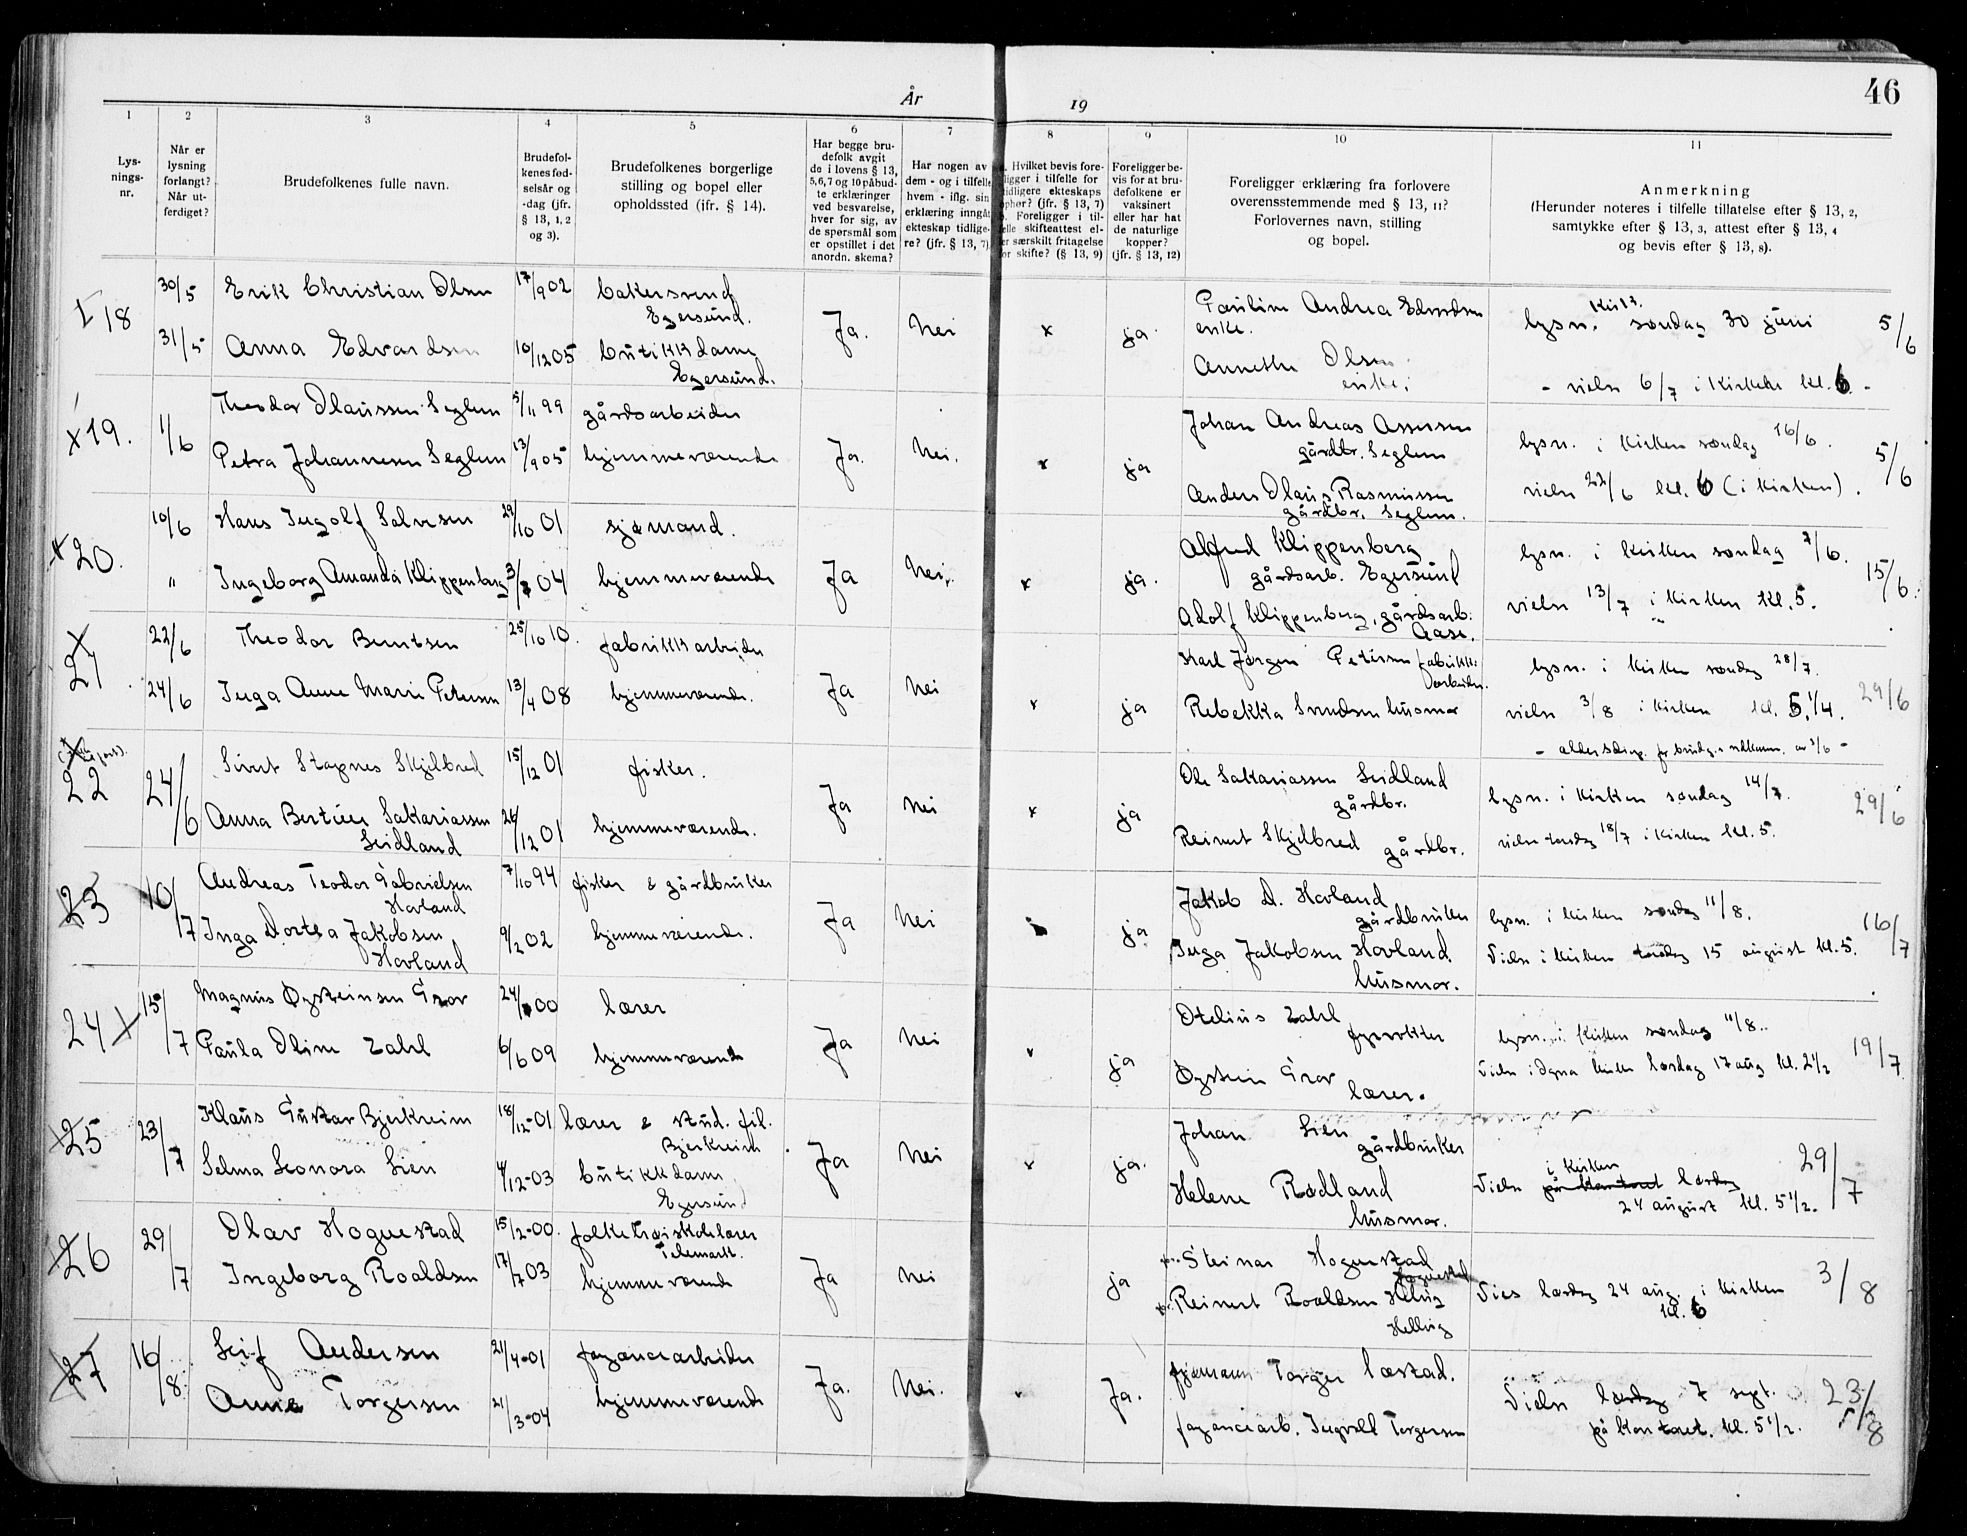 46
År 19
1 2 3 4 5 6 7 8 9 10 11
Lys-
nings-
nr.
Når er
lysning
forlangt?
Når ut-
ferdiget?
Brudefolkenes fulle navn.
Brudefol-
kenes fød-
selsår og
-dag (jfr.
§ 13, 1, 2
og 3).
Brudefolkenes borgerlige
stilling og bopel eller
opholdssted (jfr. § 14).
Har begge bru-
defolk avgit
de i lovens § 13,
5,6,7 og 10 påbud-
te erklæringer
ved besvarelse,
hver for sig, av
de spørsmål som
er opstillet i det
anordn. skema?
Har nogen av
dem - og i tilfelle
hvem - iflg. sin
erklæring inngåt
ekteskap tidlige-
re? (jfr. § 13, 7)
Hvilket bevis fore-
ligger i tilfelle for
tidligere ekteskaps
ophør? (jfr. § 13, 7)
Foreligger i til-
felle skifteattest el-
ler særskilt fritagelse
for skifte? (§ 13, 9)
Foreligger be-
vis for at bru-
defolkene er
vaksinert
eller har hat
de naturlige
kopper?
(jfr. § 13, 12)
Foreligger erklæring fra forlovere
overensstemmende med § 13, 11?
Forlovernes navn, stilling
og bopel.
Anmerkning
(Herunder noteres i tilfelle tillatelse efter § 13, 2,
samtykke efter § 13, 3, attest efter § 13, 4
og bevis efter § 13, 8).
18 30/5 Erik Christian Olsen 17/9 02 bakersvend
Egersund.
31/5 Anna Edvardsen 10/12 05 butikkdame
Egersund.
Ja. Nei x ja
Pauline Andrea Edvardsen
enke.
Annethe Olsen
enke.
lysn. søndag 30 juni 5/6
- vielse 6/7 i kirken kl. 6. -
x 19. 1/6 Theodor Olaussen Seglem 5/11 99 gårdsarbeider
Petra Johannesen Seglem 13/9 05 hjemmeværende
Ja. Nei. x ja
Johan Andreas Assersen
gårdbr. Seglem
Anders Olaus Rasmussen
gårdbr. Seglem.
lysn. i kirken søndag 16/6.
vielse 22/6 kl. 6 (i kirken). 5/6
x 20. 10/6 Hans Ingolf Salvesen 29/10 01 sjømand.
" Ingeborg Amanda Klippenberg 04 hjemmeværende
Ja Nei. x ja.
Alfred Klippenberg
gårdsarb. Egersund
Adolf Klippenberg, gårdsarb.
Aase.
lysn. i kirken søndag 7/6.
vielse 13/7 i kirken kl. 5. 15/6.
21 22/6 Theodor Berntsen 25/10 10. fabrikkarbeider
24/6 Inga Anne Marie Petersen 13/4 08 hjemmeværende.
Ja Nei x ja
Karl Jørgen Petersen fabrikk-
arbeider.
Rebekka Svendsen husmor
lysn. i kirken søndag 28/7.
vielse 3/8 i kirken kl. 5.1/4. 29/6
22 24/6 Sivert Stapnes Skjelbred 15/12 01 fisker.
Anna Bertine Sakariassen
Leidland 26/12 01 hjemmeværende.
Ja Nei x ja
Ole Sakariassen Leidland
gårdbr.
Reinert Skjelbred gårdbr.
lysn. i kirken søndag 14/7.
vielse torsdag 18/7 i kirken kl. 5. 29/6
23 10/7 Andreas Teodor Gabrielsen
Hovland 7/10 94 fisker & gårdbruker
Inga Dortea Jakobsen
Hovland 9/2 02 hjemmeværende.
Ja Nei ja
Jakob D. Hovland
gårdbruker
Inga Jakobsen Hovland.
husmor.
lysn. i kirken søndag 11/8.
Vielse i kirken torsdag 15 august kl. 5. 16/7
24 x 15/7 Magnus Øysteinsen Grov 24/ 00 lærer
Paula Oline Zahl 6/6 09 hjemmeværende
Ja Nei ja
Otelius Zahl
fyrvokter
Øystein Grov
lærer.
lysn. i kirken søndag 11/8.
Vielse i Ogna kirke lørdag 17 aug kl. 2 1/2 19/7
25 23/7 Klaus Gustav Bjerkreim 18/12-01 lærer & stud. fil.
Bjerkreim
Selma Leonora Lien 4/12-03 butikkdame
Egersund
Ja Nei x ja.
Johan Lien
gårdbruker
Helene Rødland
husmor.
i kirken
Vielse på kontoret lørdag
24 august kl. 5 1/2. 29/7
26 29/7 Olav Hognestad 15/2-00. folkehøiskolelærer
Telemark.
Ingeborg Roaldsen 17/7 03 hjemmeværende
Ja Nei ja
Steinar Hognestad
Hognestad
Reinert Roaldsen
Helleg
Vies lørdag 24 aug. i kirken
kl. 6 3/8
27 16/8 Leif Andersen 21/4-01 fayancearbeider
Anna Torgersen 21/3-04 hjemmeværende
Ja. Nei. Ja.
Torger
fayancearb. Ingvald Torgersen
Vielse lørdag 7 sept.
på kontoret. kl. 5 1/2. 23/8